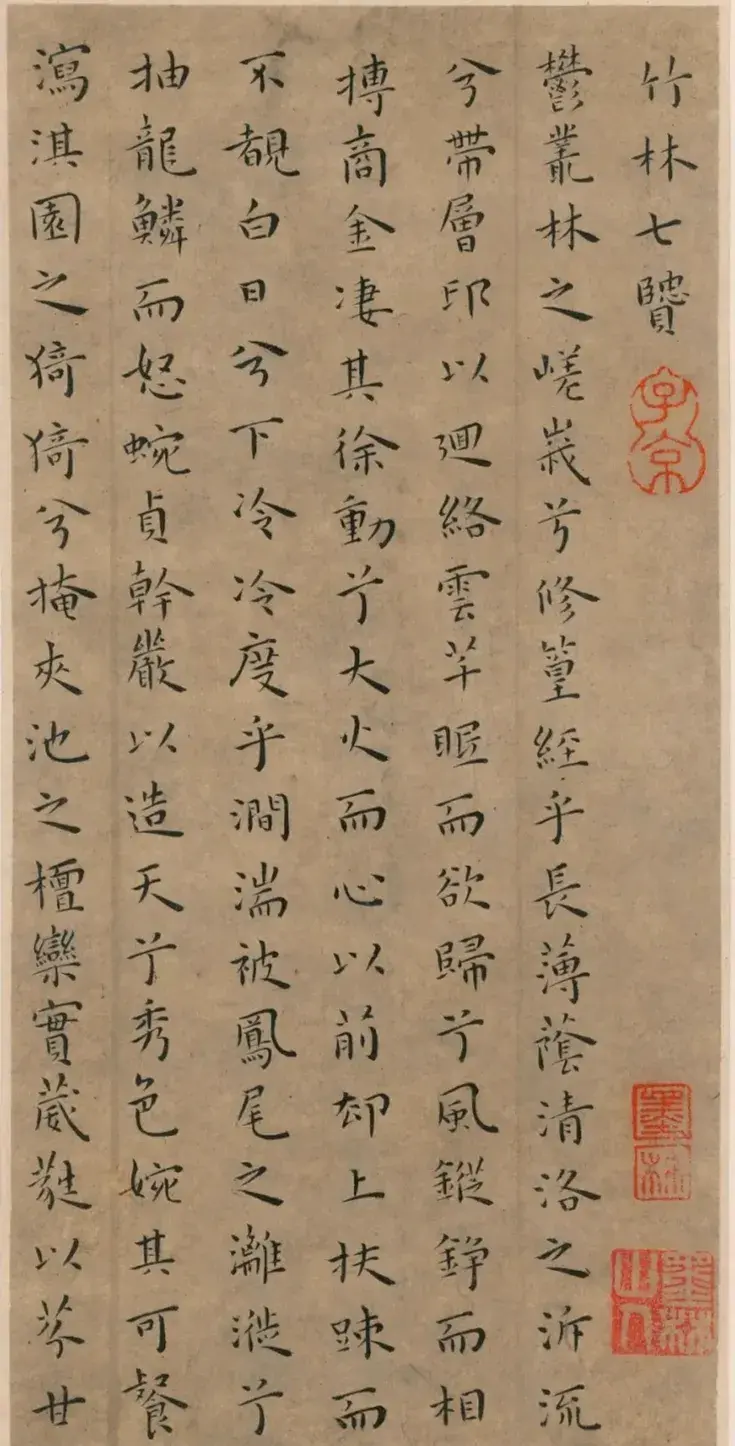 竹林七贒
子京
墨林
墨林山人
鬱叢林之嵯峩兮修篁經乎長薄蔭清洛之泝流
兮帶層邙以迴絡雲芊眠而欲歸兮風鏦錚而相
搏商金凄其徐動兮大火而心以前却上扶踈而
不覩白日兮下冷冷度乎澗湍被鳳尾之灕漇兮
抽龍鱗而怒蜿貞幹嚴以造天兮秀色婉其可餐
瀉淇園之猗猗兮掩夾池之檀欒實葳蕤以芬甘